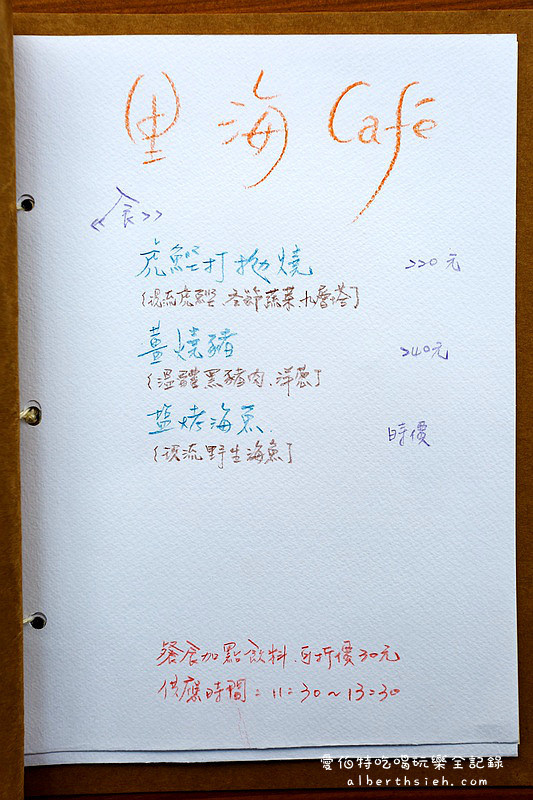 里海 Café
《食》
虎鰹打拋燒 220元
〔現流虎鰹、各節蔬菜、九層塔〕
薑燒豬 240元
〔溫體黑豬肉、洋蔥〕
盐烤海魚 時價
〔現流野生海魚〕
餐食加點飲料、可折價30元
供應時間：11:30～13:30
愛伯特吃喝玩樂全記錄
alberthsieh.com